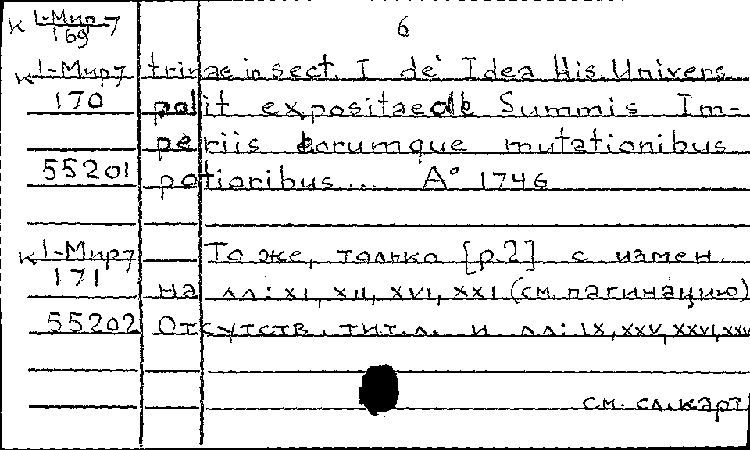 6
К 1-Мир-7
169
trinae in sect. I de Idea His. Univers
К 1-Мир7
170
polit expositaede Summis Im-
periis eorumque mutationibus
55201
potioribus... A° 1746
К 1-Мир7
171
То же, только [p.2] с измен.
на лл: XI, XII, XVI, XXI (см. пагинацию)
55202
Отсутств. тит. л. и лл: IX, XXV, XXVI,
см. сл. карт